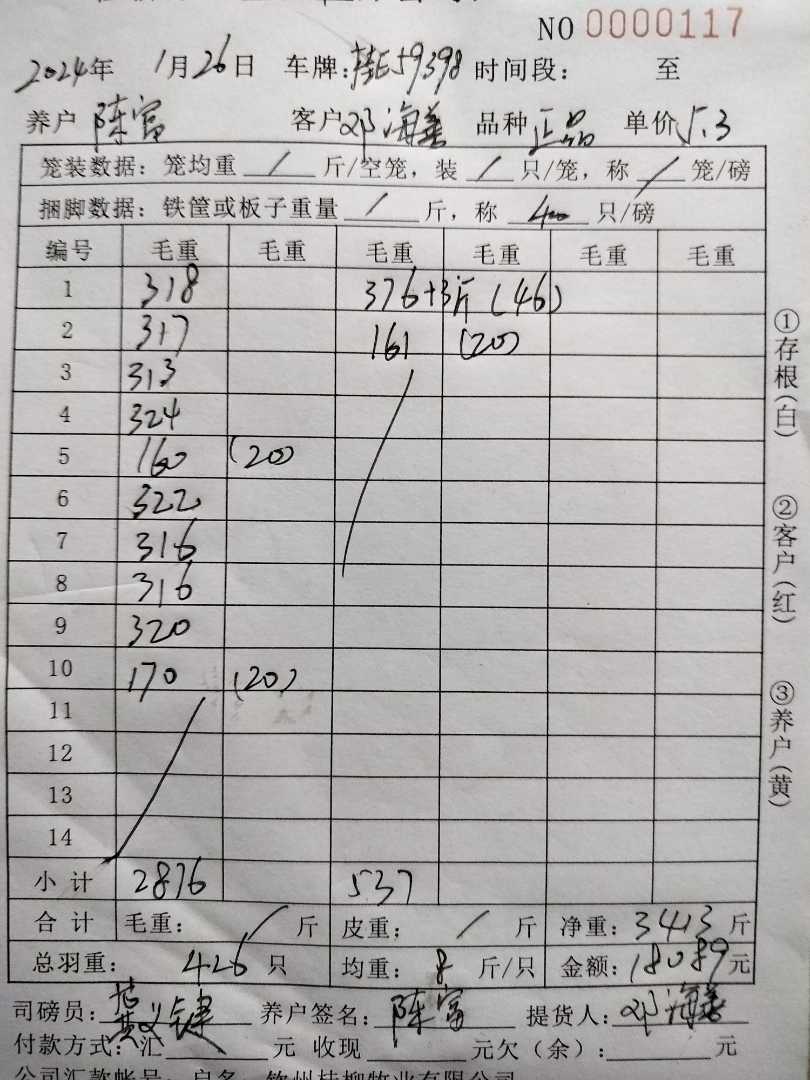 NO 0000117
2024年 1月26日 车牌:桂E59398 时间段: 至
养户 陈富 客户 邓海 品种 正品 单价 5.3
笼装数据: 笼均重 / 斤/空笼, 装 / 只/笼, 称 / 笼/磅
捆脚数据: 铁筐或板子重量 / 斤, 称 40 只/磅
编号 毛重 毛重 毛重 毛重 毛重 毛重
1 318 376+3斤(46)
2 317 161 (20)
3 313
4 324
5 160 (20)
6 322
7 316
8 316
9 320
10 170 (20)
11
12
13
14
小计 2876 537
合计 毛重: / 斤 皮重: / 斤 净重: 3413 斤
总羽重: 426 只 均重: 8 斤/只 金额: 18089 元
司磅员: 养户签名: 陈富 提货人: 邓海
付款方式:汇 元 收现 元欠(余): 元
公司汇款帐号: 户名: 钦州桂柳牧业有限公司
①存根(白)
②客户(红)
③养户(黄)